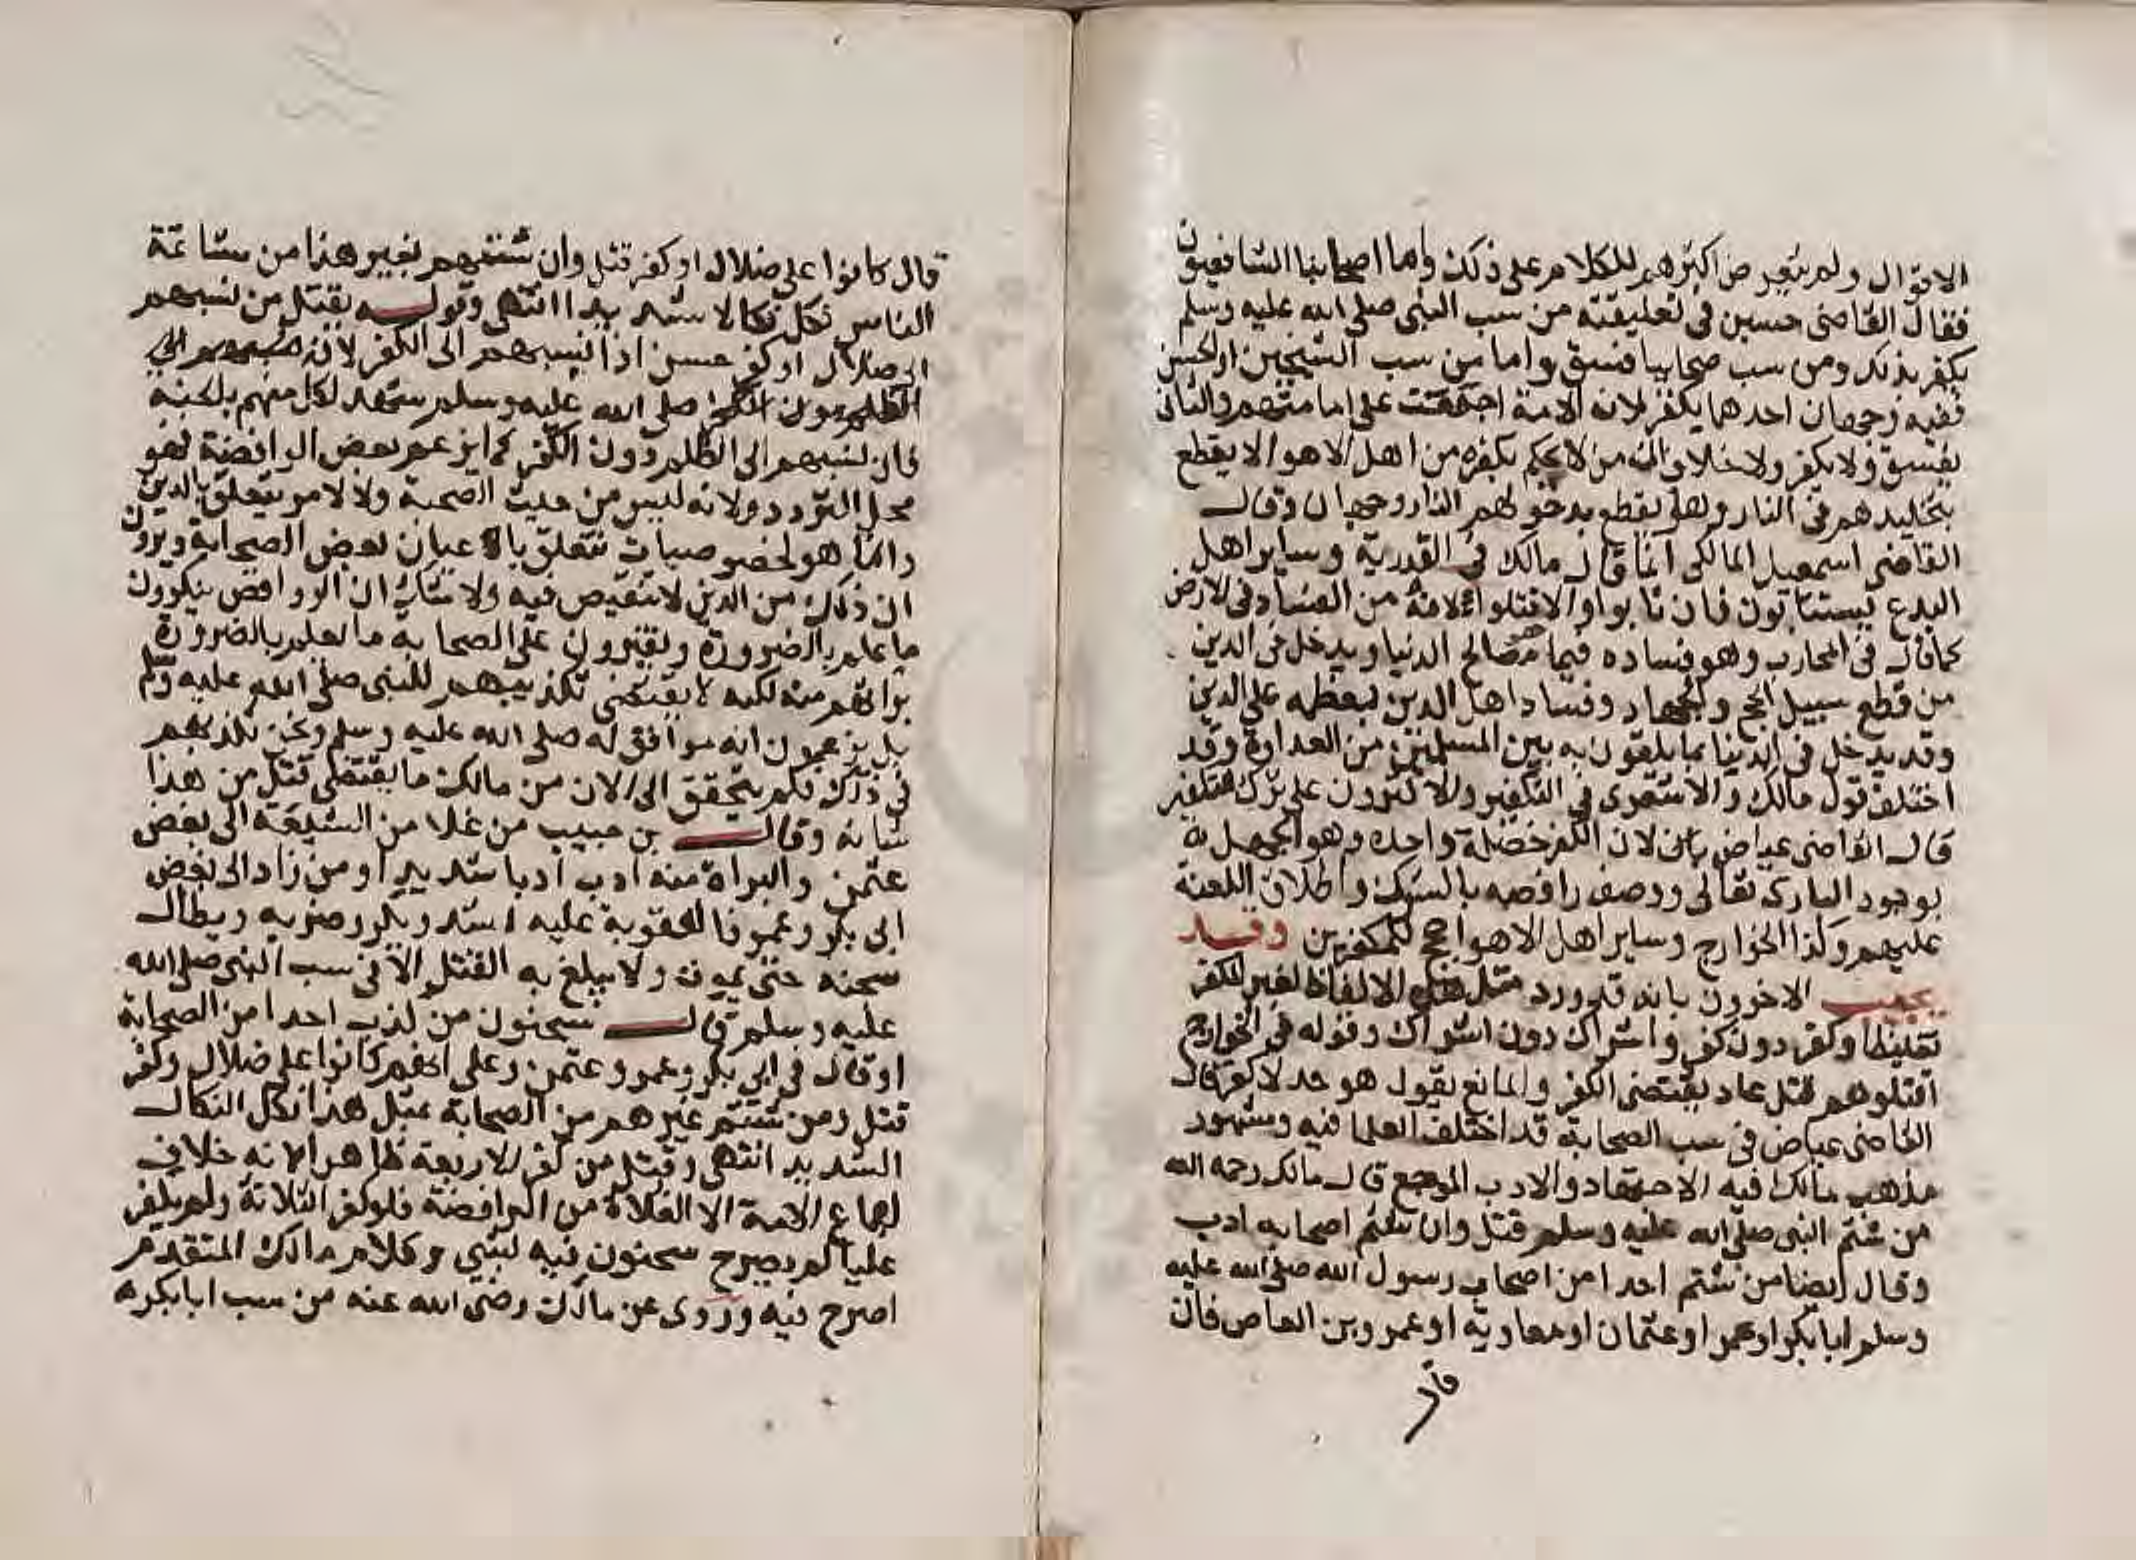 الاقوال ولم يتعرض اكثرهم للكلام على ذلك واما اصحابنا الشافعيون
فقال القاضى حسين فى تعليقته من سب النبى صلى الله عليه وسلم
يكفر بذلك ومن سب صحابيا فسق واما من سب الشيخين او الحسن
ففيه وجهان احدهما يكفر لان الامة اجمعت على امامتهم والثانى
يفسق ولا يكفر ولا خلاف ان من لا يحكم بكفره من اهل الاهوا لا يقطع
بتخليدهم فى النار وهل يقطع بدخولهم النار وجهان وقال
القاضى اسمعيل المالكى انما قال مالك فى القدرية وساير اهل
البدع يستتابون فان تابوا والا قتلوا لانه من الفساد فى الارض
كما قال فى المحارب وهو فساده فيما مصالح الدنيا ويدخل فى الدين
من قطع سبيل الحج والجهاد وفساد اهل الدين بعظه على الدين
وقد يدخل فى الدنيا بما يلقون به بين المسلمين من العداوة وقد
اختلف قول مالك والاشعرى فى التكفير والاكثرون على ترك التكفير
قال القاضى عياض بان لان الكفر خصلة واحده وهو الجهل به
بوجود البارى تعالى ووصف رافضه بالشرك واطلاق اللعنة
عليهم وكذا الخوارج وساير اهل الاهوا حجج للمكفرين وقد
يجيب الاخرون بانه قد ورد مثل هذه الالفاظ لغير الكفر
تغليظا وكفر دون كفر واشراك دون اشراك وقوله فى الخوارج
اقتلوهم قتل عاد يقتضى الكفر والمانع يقول هو حد لا كفر قال
القاضى عياض فى سب الصحابة قد اختلف العلما فيه ومشهور
مذهب مالك فيه الاجتهاد والادب الموجع قال مالك رحمه الله
من شتم النبى صلى الله عليه وسلم قتل وان شتم اصحابه ادب
وقال ايضا من شتم احدا من اصحاب رسول الله صلى الله عليه
وسلم ابا بكر او عمر او عثمان او معاوية او عمرو بن العاص فان
قال
قال كانوا على ضلال او كفر قتل وان شتمهم بغير هذا من مشاتمة
الناس نكل نكالا شديدا انتهى وقوله يقتل من نسبهم
الى ضلال او كفر حسن اذا نسبهم الى الكفر لانه
صلى الله عليه وسلم شهد لكل منهم بالجنة
فان نسبهم الى الظلم دون الكفر كما يزعم بعض الرافضة فهو
محل التردد ولانه ليس من حيث الصحبة ولا لامر يتعلق بالدين
وانما هو لخصوصيات تتعلق باعيان بعض الصحابة ويرون
ان ذلك من الدين لا تنقيص فيه ولا شك ان الروافض ينكرون
ما علم بالضرورة ويفترون على الصحابة ما نعلم بالضرورة
براتهم منه لكنه لا يقتضى تكذيبهم للنبى صلى الله عليه وسلم
بل يزعمون انه موافق له صلى الله عليه وسلم ونحن نكذبهم
فى ذلك فلم يتحقق الى الان من مالك ما يقتضى قتل من هذا
شانه وقال بن حبيب من غلا من الشيعة الى بغض
عثمن والبراة منه ادب ادبا شديدا ومن زاد الى بغض
ابى بكر وعمر فالعقوبة عليه اشد ويكرر ضربه ويطال
سجنه حتى يموت ولا يبلغ به القتل الا فى سب النبى صلى الله
عليه وسلم قال سحنون من كذب احدا من الصحابة
او قال فى ابى بكر وعمر وعثمن وعلى انهم كانوا على ضلال وكفر
قتل ومن شتم غيرهم من الصحابة بمثل هذا نكل النكال
الشديد انتهى وقتل من كفر الاربعة ظاهر لانه خلاف
اجماع الامة الا الغلاة من الرافضة فلو كفر الثلاثة ولم يكفر
عليا لم يصرح سحنون فيه بشى وكلام مالك المتقدم
اصرح فيه وروى عن مالك رضى الله عنه من سب ابا بكر